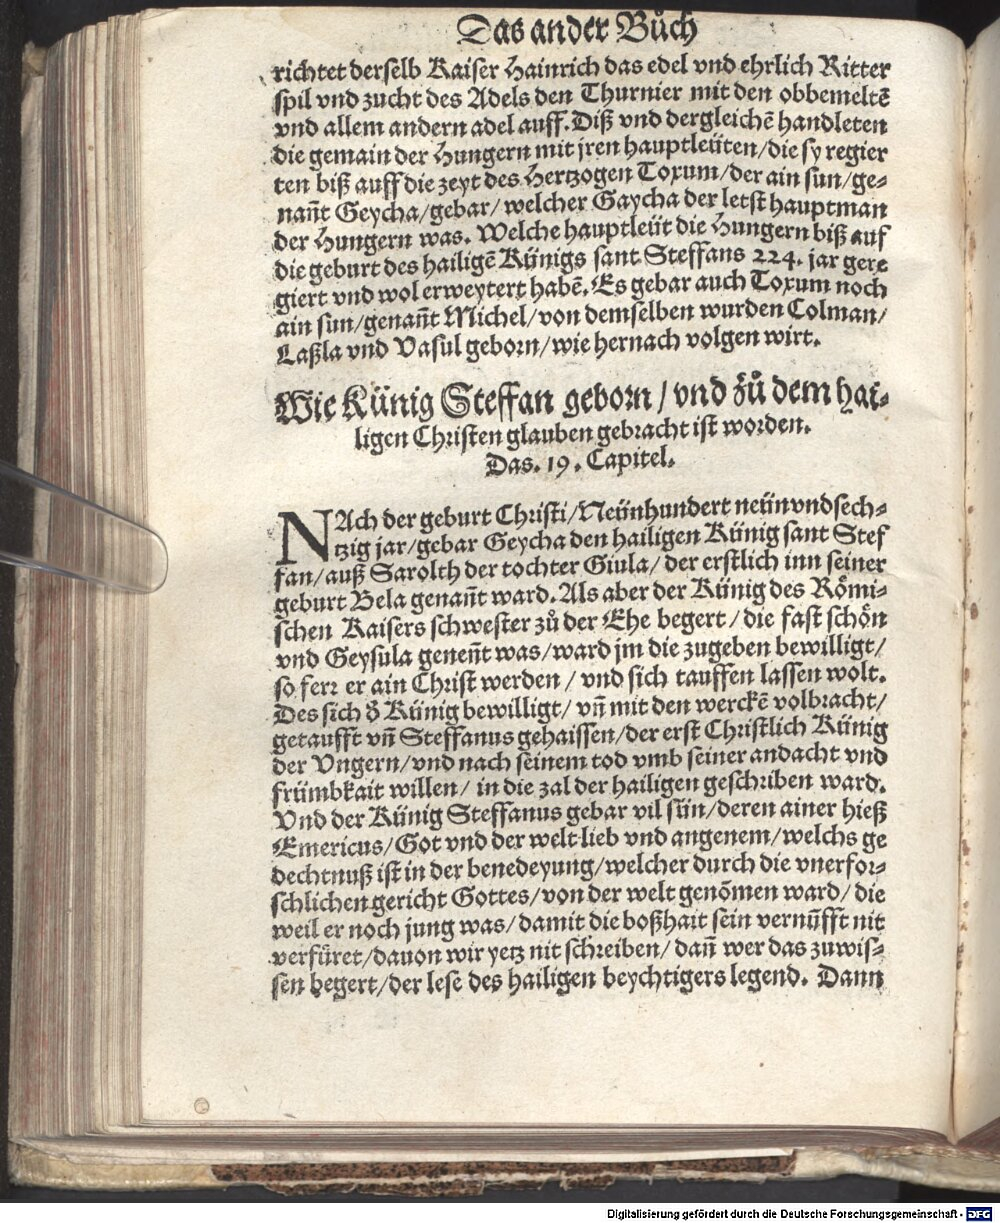 Das ander Bůch
richtet derselb Kaiser Hainrich das edel vnd ehrlich Ritter
spil vnd zucht des Adels den Thurnier mit den obbemeltē
vnd allem andern adel auff. Diß vnd dergleichē handleten
die gemain der Hungern mit jren hauptleüten/die sy regier
ten biß auff die zeyt des Hertzogen Toxum/der ain sun/ge⸗
nañt Geycha/gebar/welcher Gaycha der letst hauptman
der Hungern was. Welche hauptleüt die Hungern biß auf
die geburt des hailigē Künigs sant Steffans 224. jar gere
giert vnd wol erweytert habē. Es gebar auch Toxum noch
ain sun/genañt Michel/von demselben wurden Colman/
Laßla vnd Vasul geborn/wie hernach volgen wirt.
Wie Künig Steffan geborn/vnd zů dem hai⸗
ligen Christen glauben gebracht ist worden.
Das. 19. Capitel.
NAch der geburt Christi/Neünhundert neünvndsech⸗
tzig jar/gebar Geycha den hailigen Künig sant Stef
fan/auß Sarolth der tochter Giula/der erstlich inn seiner
geburt Bela genañt ward. Als aber der Künig des Römi⸗
schen Kaisers schwester zů der Ehe begert/die fast schön
vnd Geysula geneñt was/ward jm die zugeben bewilligt/
so ferr er ain Christ werden/vnd sich tauffen lassen wolt.
Des sich d̕ Künig bewilligt/vñ mit den werckē volbracht/
getaufft vñ Steffanus gehaissen/der erst Christlich Künig
der Vngern/vnd nach seinem tod vmb seiner andacht vnd
frümbkait willen/in die zal der hailigen geschriben ward.
Vnd der Künig Steffanus gebar vil sün/deren ainer hieß
Emericus/Got vnd der welt lieb vnd angenem/welchs ge
dechtnuß ist in der benedeyung/welcher durch die vnerfor⸗
schlichen gericht Gottes/von der welt genōmen ward/die
weil er noch jung was/damit die boßhait sein vernüfft nit
verfüret/dauon wir yetz nit schreiben/dañ wer das zuwis⸗
sen begert/der lese des hailigen beychtigers legend. Dann
Digitalisierung gefördert durch die Deutsche Forschungsgemeinschaft - DFG